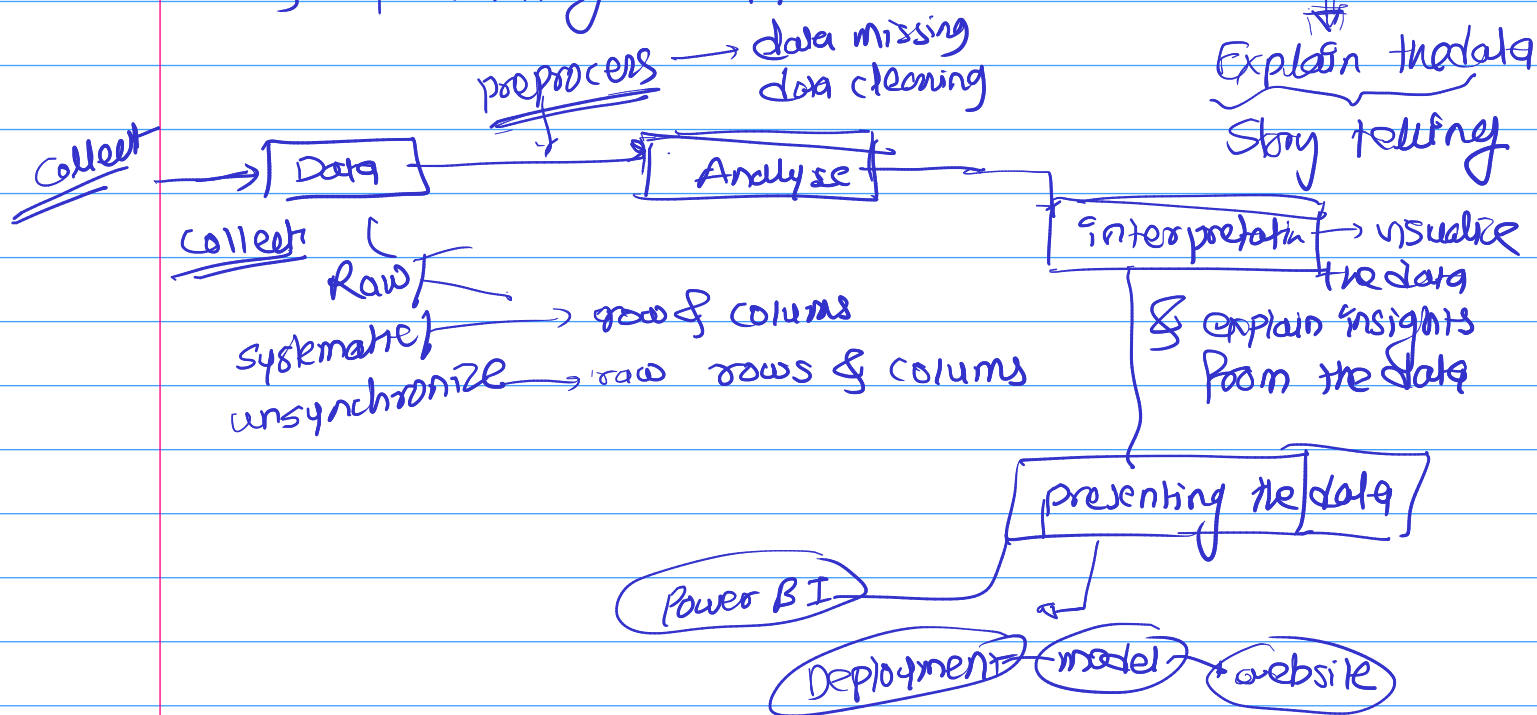 preprocess → data missing
data cleaning
Explain the data
Story telling
Collect
Data
Analyse
collect
Raw
interpretatin → visualize
the data
& explain insights
from the data
systematic → row & colums
unsynchronize → raw rows & colums
presenting the data
Power BI
Deployment model website